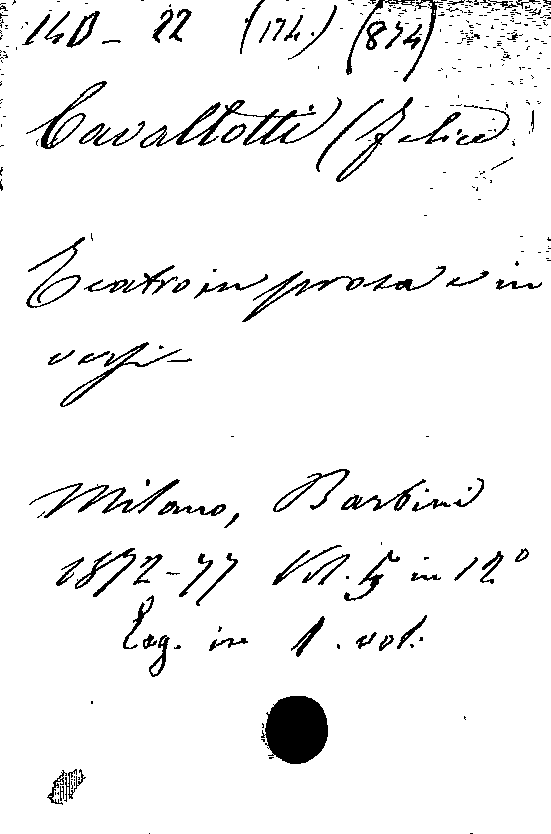 14B - 22 (174.) (874)
Cavallotti (Felice)
Teatro in prosa e in
versi -
Milano, Barbini
1872-77 Vol. 5 in 12°
Leg. in 1. vol.